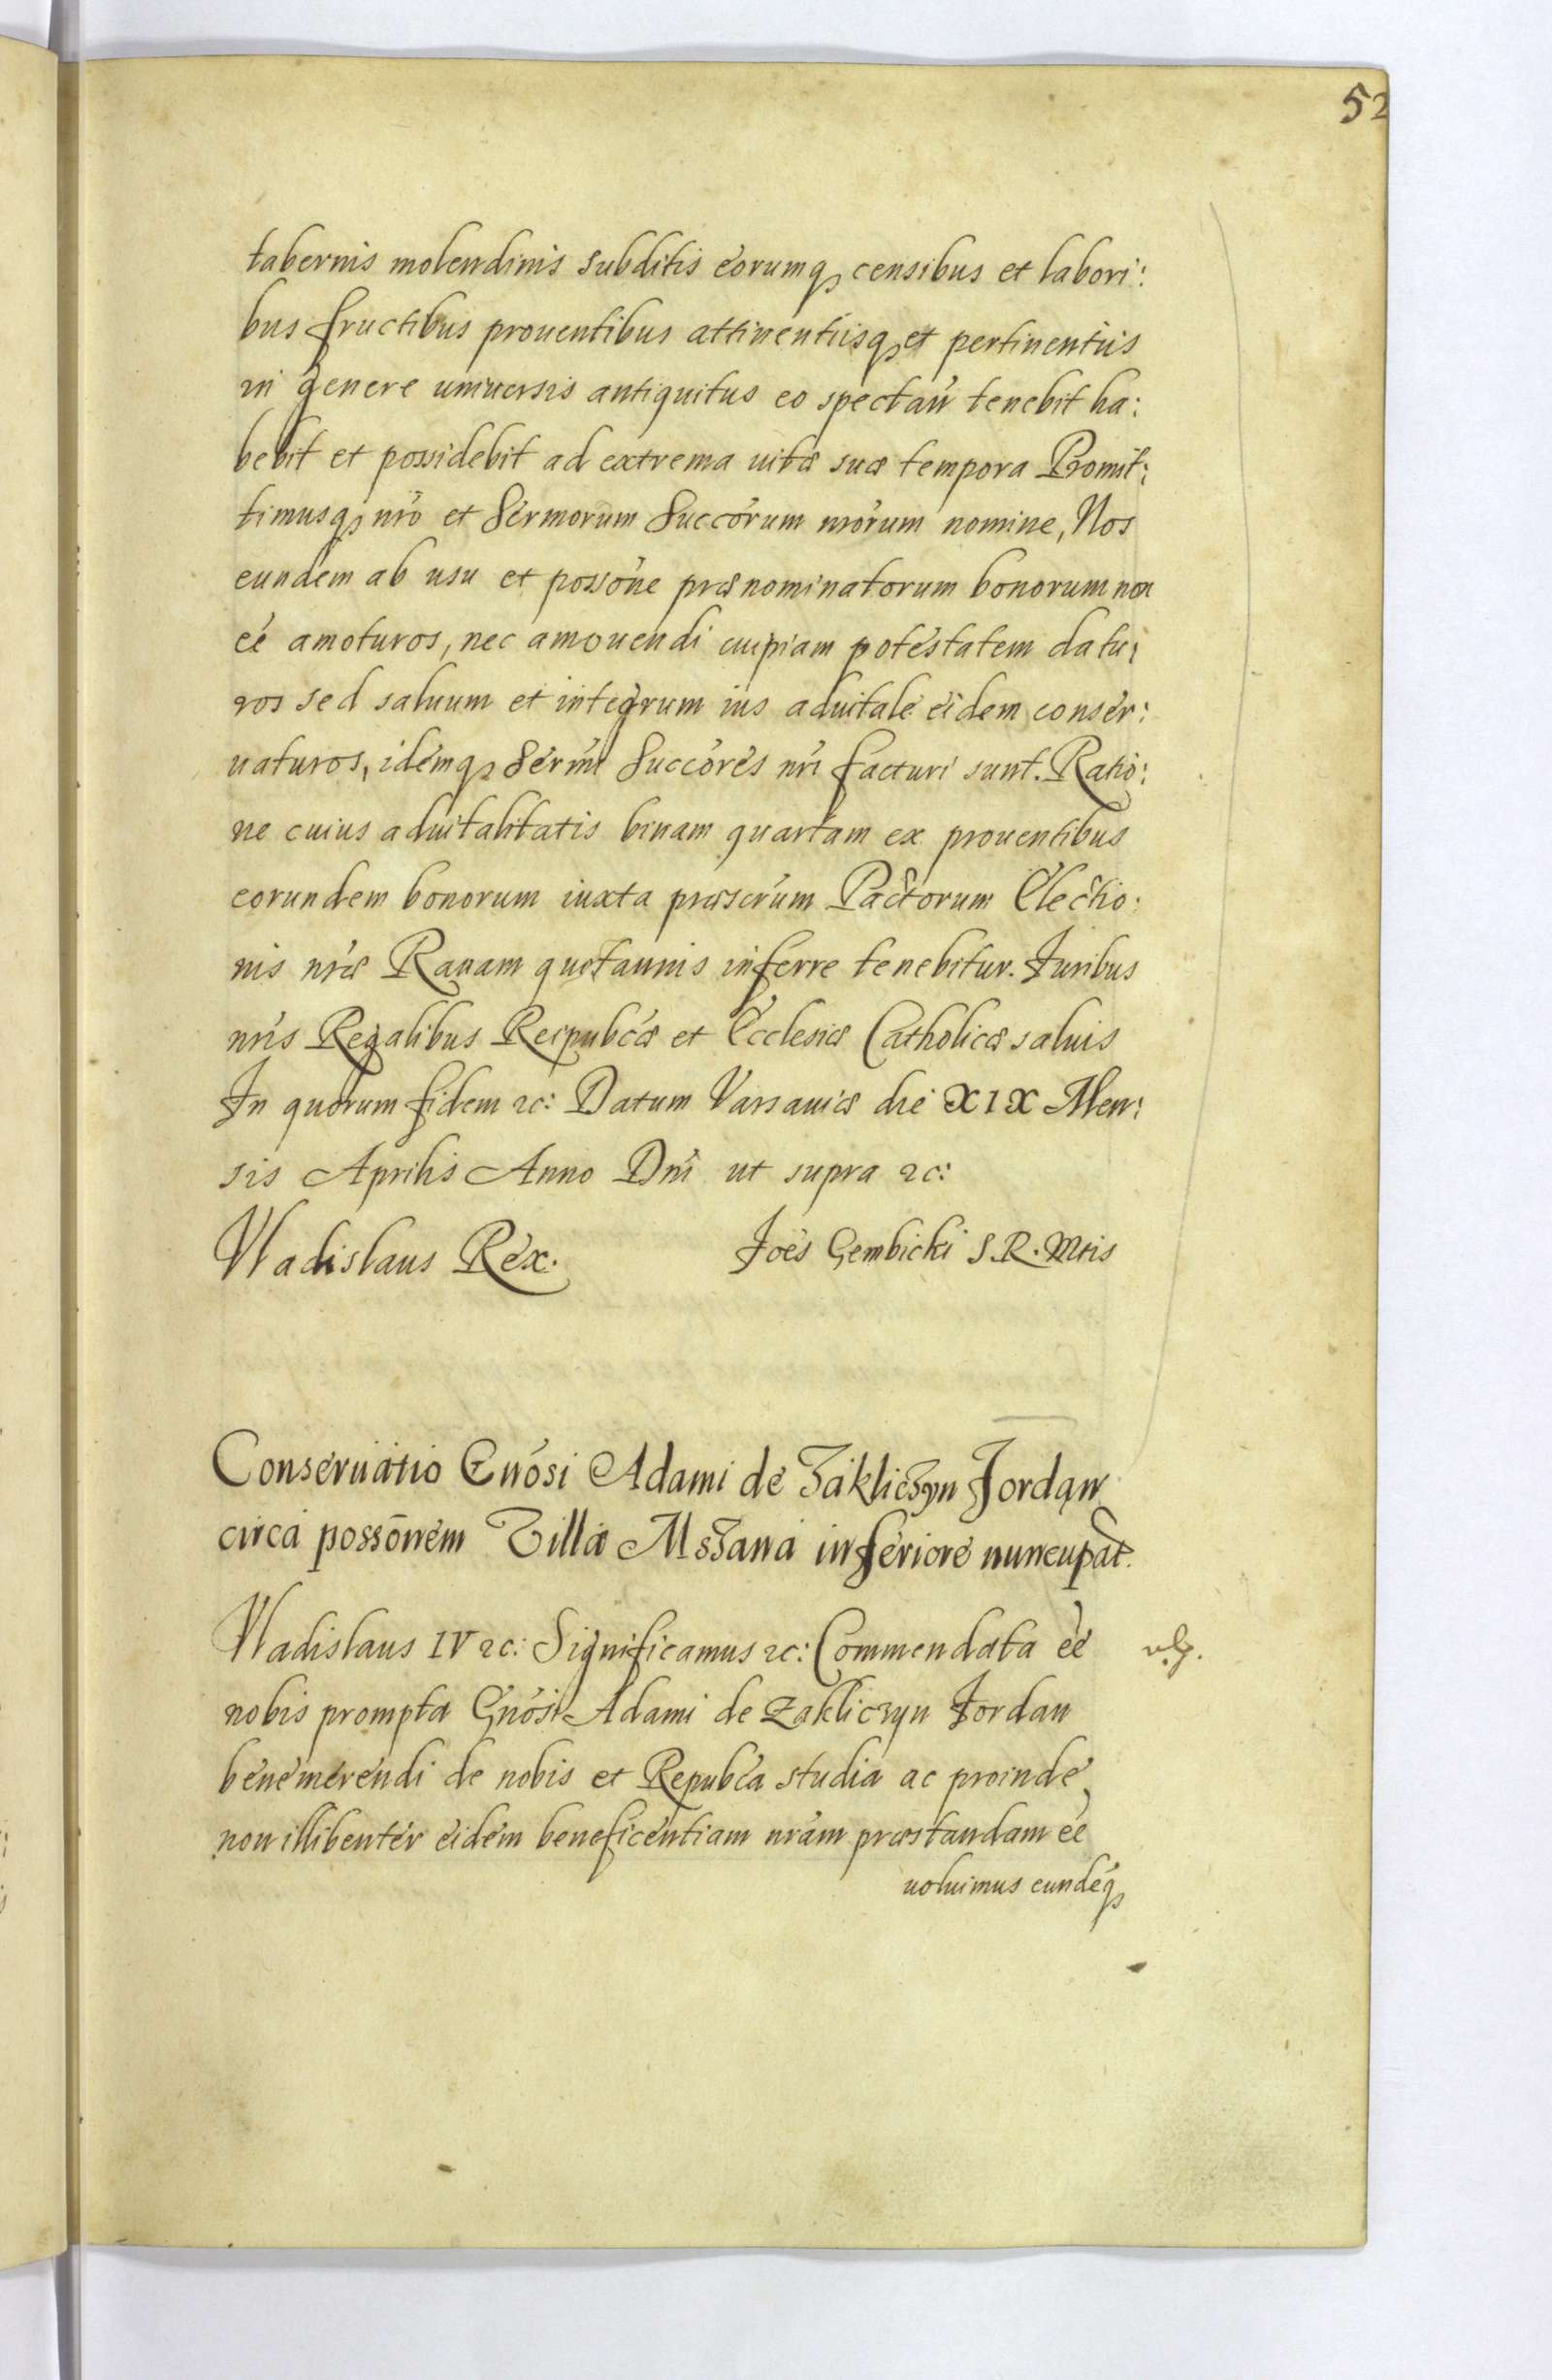 52
tabernis molendinis subditis eorumq, censibus et labori:
bus fructibus prouentibus attinentiisq, et pertinentiis
in genere uniuersis antiquitus eo spectań tenebit ha:
bebit et possidebit ad extrema uitæ suæ tempora Promit:
timusq, nró et Sermorum Succórum nrórum nomine, Nos
eundem ab usu et possóne prænominatorum bonorum non
eé amoturos, nec amouendi cuipiam potestatem datu:
ros sed saluum et integrum ius aduitale eidem conser:
uaturos, idemq, Sermi Succóres nri facturi sunt. Ratio:
ne cuius aduitalitatis binam quartam ex prouentibus
eorundem bonorum iuxta præscrúm Pactorum Electio:
nis nræ Rauam quotannis inferre tenebitur. Juribus
nris Regalibus Reipubcæ et Ecclesiæ Catholicæ saluis
In quorum fidem ꝛc: Datum Varsauiæ die XIX Men:
sis Aprilis Anno Dni ut supra ꝛc:
Vladislaus Rex. Joes Gembicki S.R. Mtis
Conseruatio Gnósi Adami de Zakliczyn Jordan
circa possōnem Villæ Mszana inferiore nuncupat.
Vladislaus IV ꝛc: Significamus ꝛc: Commendata eé
nobis prompta Gnósi Adami de Zakliczyn Jordan
benemerendi de nobis et Repubca studia ac proinde
non illibenter eidem beneficentiam nram præstandam eé
uoluimus eundéq,